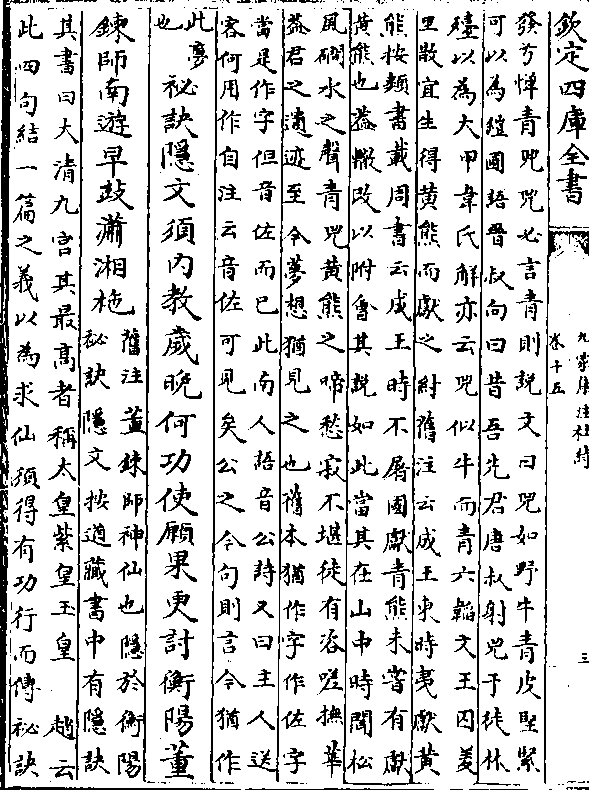 欽定四庫全書
九家集注杜詩
卷十五
三
發兮憚青兕兕必言青則説文曰兕如野牛青皮堅緊
可以為鎧國語晉叔向曰昔吾先君唐叔射兕于徒林
殪以為大甲韋氏解亦云兕似牛而青六韜文王囚羑
里散宜生得黄熊而獻之紂舊注云成王東時夷獻黄
熊按類書載周書云成王時不屠國獻青熊未嘗有獻
黄熊也蓋輙改以附㑹其説如此當其在山中時聞松
風磵水之聲青兕黄熊之啼愁寂不堪徒有咨嗟撫華
蓋君之遺迹至今夢想猶見之也舊本猶作字作佐字
當是作字但音佐而已此南人語音公詩又曰主人送
客何用作自注云音佐可見矣公之今句則言今猶作
此夢
也
秘訣隱文須内教歲晚何功使願果更討衡陽董
鍊師南遊早鼓瀟湘柂
舊注董鍊師神仙也隱於衡陽
秘訣隱文按道藏書中有隱訣
其書曰大清九宫其最髙者稱太皇紫皇玉皇 趙云
此四句結一篇之義以為求仙須得有功行而傳秘訣